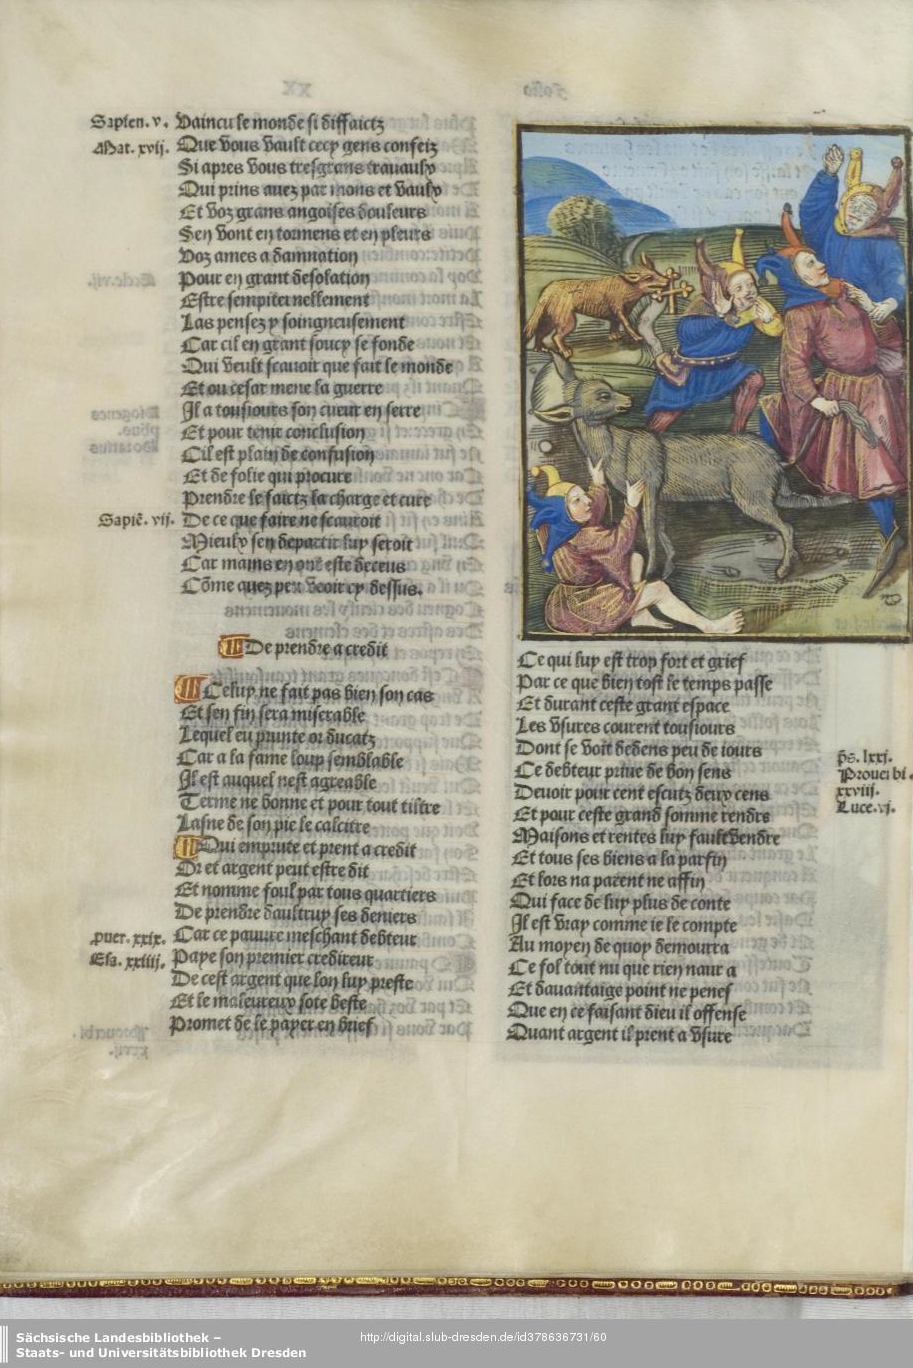 Sapien. v.
Mat. xvij.
Vaincu le monde si diffaictz
Que vous vault cecy gens confeiz
Si apres vous tresgrans trauaulx
Qui prins auez par mons et vaulx
Et voz grans angoises douleurs
Sen vont en tormens et en pleurs
Voz ames a damnation
Pour en grant desolation
Estre sempiternellement
Las pensez y soingneusement
Car cil en grant soucy se fonde
Qui veult scauoir que fait le monde
Et ou cesar mene la guerre
Il a tousiours son cueur en serre
Et pour tenir conclusion
Cil est plain de confusion
Et de folie qui procure
Prendre le faictz la charge et cure
Sapiē. vij.
De ce que faire ne scauroit
Mieulx sen departir luy seroit
Car mains en ont este deceus
Cōme auez peu veoir cy dessus.
De prendre a credit
Celuy ne fait pas bien son cas
Et sen fin sera miserable
Lequel emprunte or ducatz
Car a la fame loup semblable
Il est auquel nest agreable
Terme ne donne et pour tout tiltre
Lasne de son pie le calcitre
Qui emprūte et prent a credit
Or et argent peut estre dit
Et nomme foul par tous quartiers
De prendre daultruy ses deniers
puer. xxix.
Esa. xxiiij.
Car ce pauure meschant debteur
Paye son premier crediteur
De cest argent que lon luy preste
Et le maleureux sote beste
Promet de le payer en brief
Ce qui luy est trop fort et grief
Par ce que bien tost le temps passe
Et durant ceste grant espace
Les vsures courent tousiours
Dont se voit dedens peu de iours
Ce debteur priue de bon sens
Deuoir pour cent escutz deux cens
Et pour ceste grand somme rendre
Maisons et rentes luy fault vendre
Et tous ses biens a la parfin
Et lors na parent ne affin
Qui face de luy plus de conte
Il est vray comme ie le compte
Au moyen de quoy demourra
Ce fol tout nu que rien naura
Et dauantaige point ne pense
Que en ce faisant dieu il offense
Quant argent il prent a vsure
p̄s. lxxi.
Prouerbi.
xxviij.
Luce. vj.
Sächsische Landesbibliothek –
Staats- und Universitätsbibliothek Dresden
http://digital.slub-dresden.de/id378636731/60